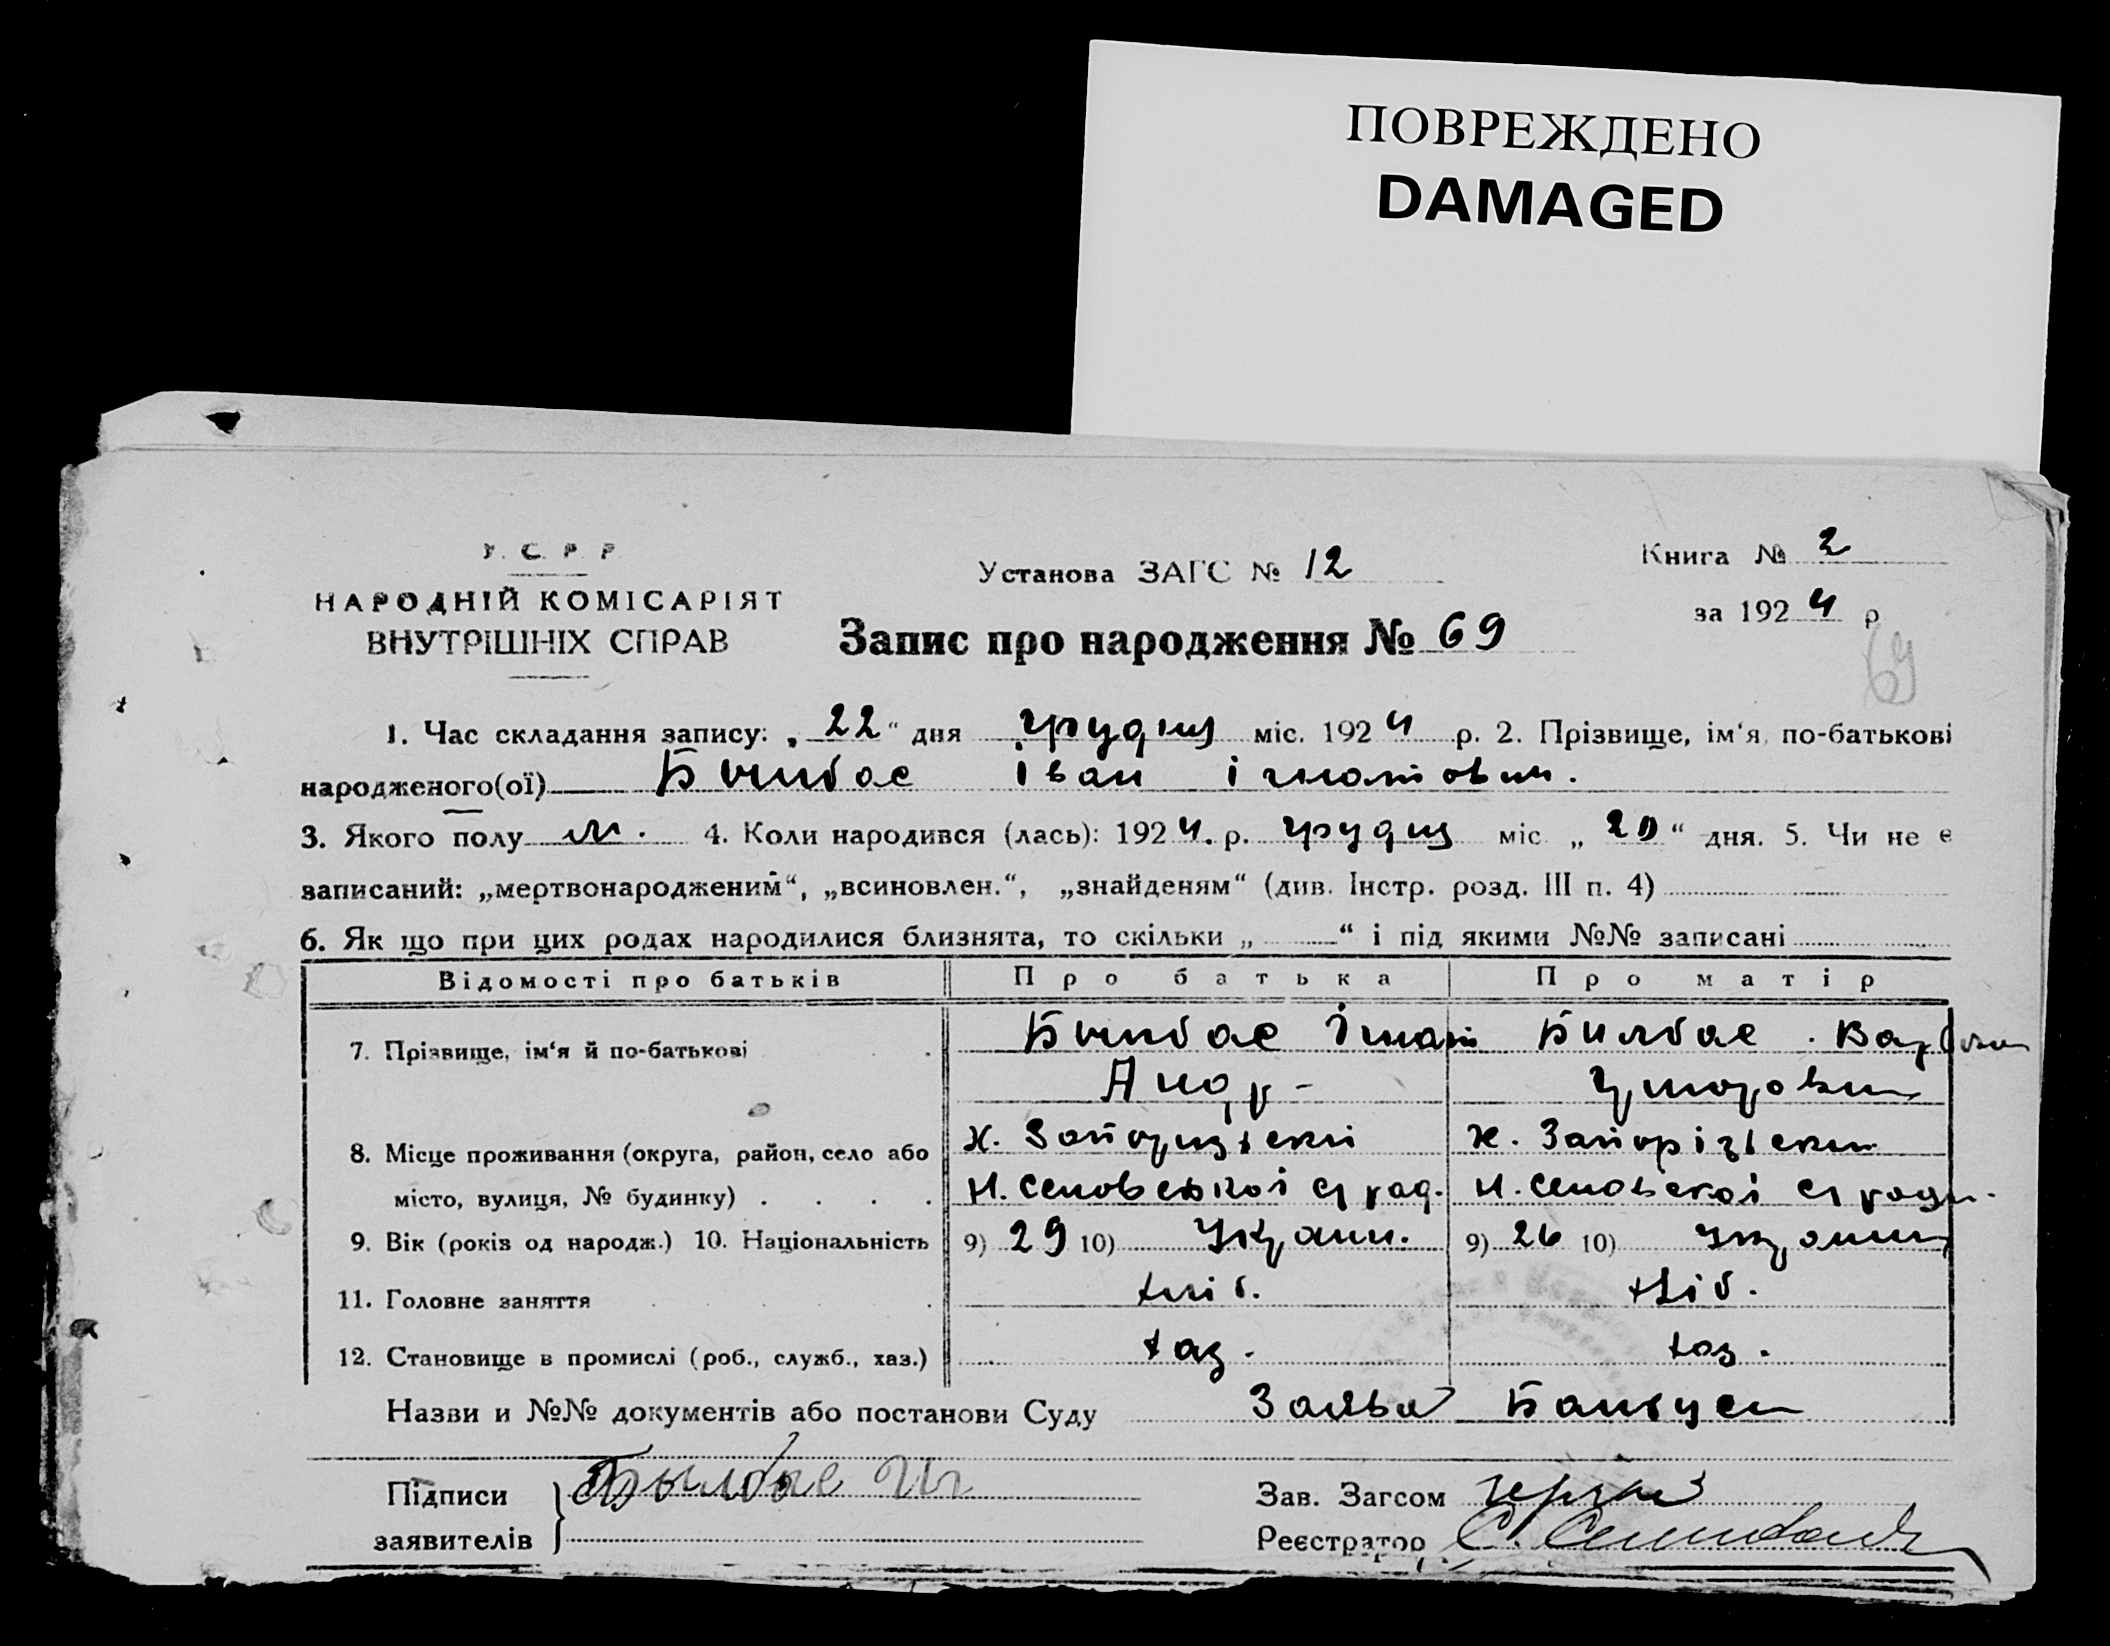 ПОВРЕЖДЕНО
DAMAGED
У. С. Р. Р.
НАРОДНІЙ КОМІСАРІЯТ
ВНУТРІШНІХ СПРАВ
Установа ЗАГС № 12
Книга № 2
за 1924 р
Запис про народження № 69
69
1. Час складання запису: „22“ дня грудня міс. 1924 р. 2. Прізвище, ім‘я, по-батькові
народженого(ої) Билбас Іван Ігнатович.
3. Якого полу м. 4. Коли народився (лась): 1924. р. грудня міс. „20“ дня. 5. Чи не є
записаний: „мертвонародженим“, „всиновлен.“, „знайденям“ (див. Інстр. розд. III п. 4)
6. Як що при цих родах народилися близнята, то скільки „ “ і під якими №№ записані
Відомості про батьків Про батька Про матір
7. Прізвище, ім‘я й по-батькові Билбас Ігнат Билбас
Андр-
8. Місце проживання (округа, район, село або х. Запорізьский х. Запорізьский
місто, вулиця, № будинку)
9. Вік (років од народж.) 10. Національність 9) 29 10) Украин. 9) 26 10)
11. Головне заняття хліб. хліб.
12. Становище в промислі (роб., служб., хаз.) хаз. хаз.
Назви и №№ документів або постанови Суду Заява
Підписи Былбас Иг
заявителів
Зав. Загсом
Реєстратор